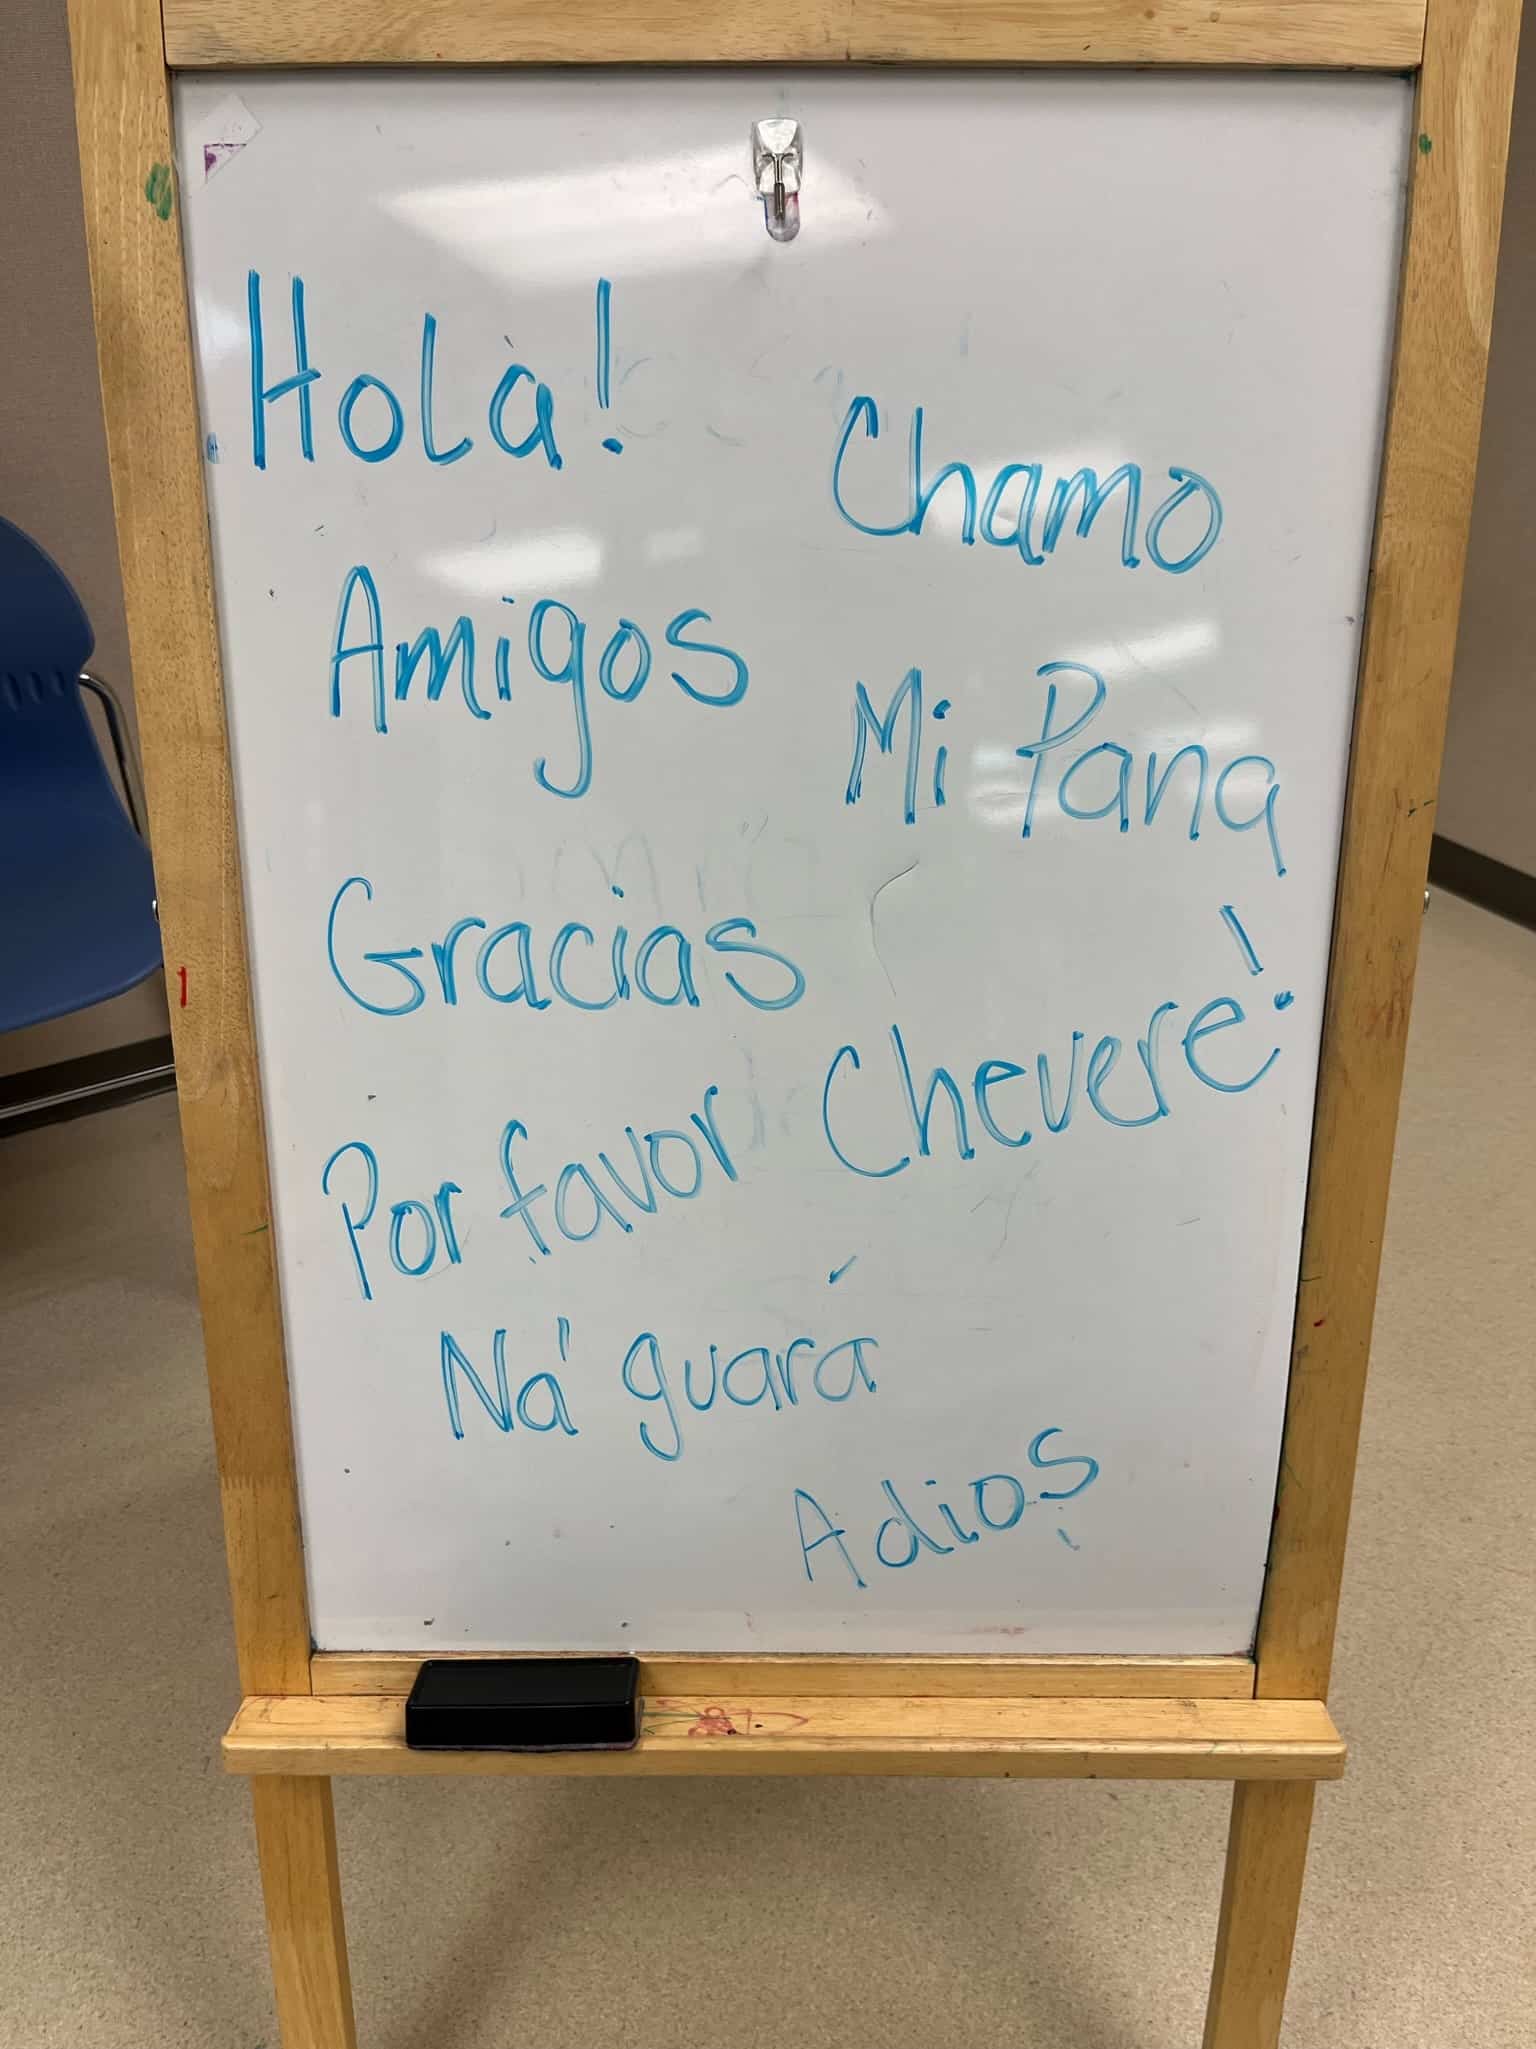 Hola!
Amigos
Gracias
Por favor
Chamo
Mi Pana
Chevere!
Na' guará
Adios